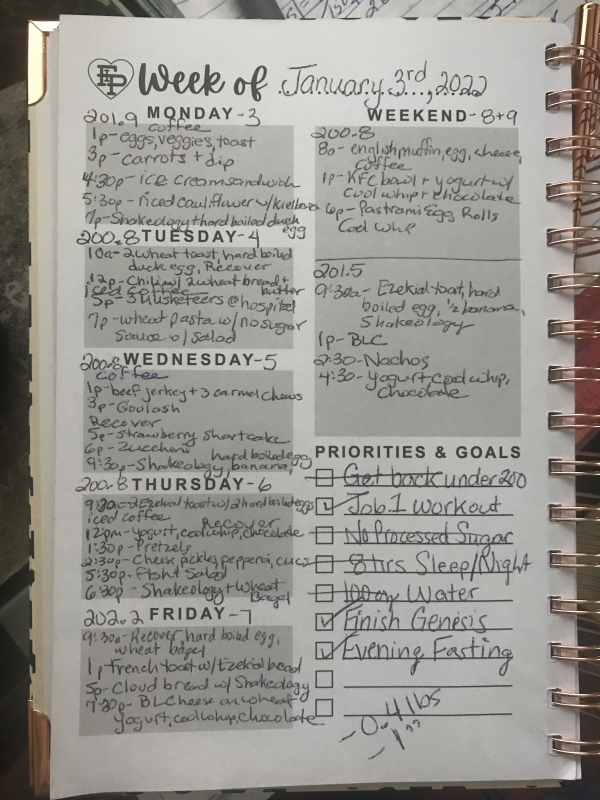 FP Week of January 3rd, 2022
201.9 MONDAY-3
coffee
1p-eggs, veggies, toast
3p-carrots + dip
4:30p-ice cream sandwich
5:30p-riced cauliflower w/kielbasa
7p-Shakeology+hard boiled duck egg
200.8 TUESDAY-4
10a-2 wheat toast, hard boiled
duck egg, Recover
12p-Chili w/ 2 wheat bread + butter
iced coffee
5p-3 Musketeers @ hospital
7p-wheat pasta w/ no sugar
Sauce w/ Salad
200.8 WEDNESDAY-5
coffee
1p-beef jerky + 3 carmel chews
3p-Goulash
Recover
5p-strawberry shortcake
6p-Zucchini
9:30p-Shakeology, banana, hard boiled egg
200.8 THURSDAY-6
9:20a-2 Ezekial toast w/2 hard boiled eggs
iced coffee Recover
12pm-yogurt, cool whip, chocolate
1:30p-Pretzels
2:30p-Cheese, pickles, pepperoni, cucs
5:30p-Fish + Salad
6:30p-Shakeology + Wheat
Bagel
202.2 FRIDAY-7
9:30a-Recover, hard boiled egg,
wheat bagel
1p French toast w/ Ezekial bread
5p-Cloud bread w/ Shakeology
7:30p-BLCheese on wheat
yogurt, cool whip, chocolate
WEEKEND-8+9
200.8
8a-english muffin, egg, cheese,
coffee
1p-KFC bowl + yogurt w/
Cool whip + chocolate
6p-Pastrami Egg Rolls
Cool whip
201.5
9:30a-Ezekial toast, hard
boiled egg, 1/2 banana,
Shakeology
1p-BLC
2:30-Nachos
4:30-yogurt, cool whip,
Chocolate
PRIORITIES & GOALS
Get back under 200
Job 1 workout
No Processed Sugar
8 Hrs Sleep/Night
100 oz Water
Finish Genesis
Evening Fasting
-0.4 lbs
-1"